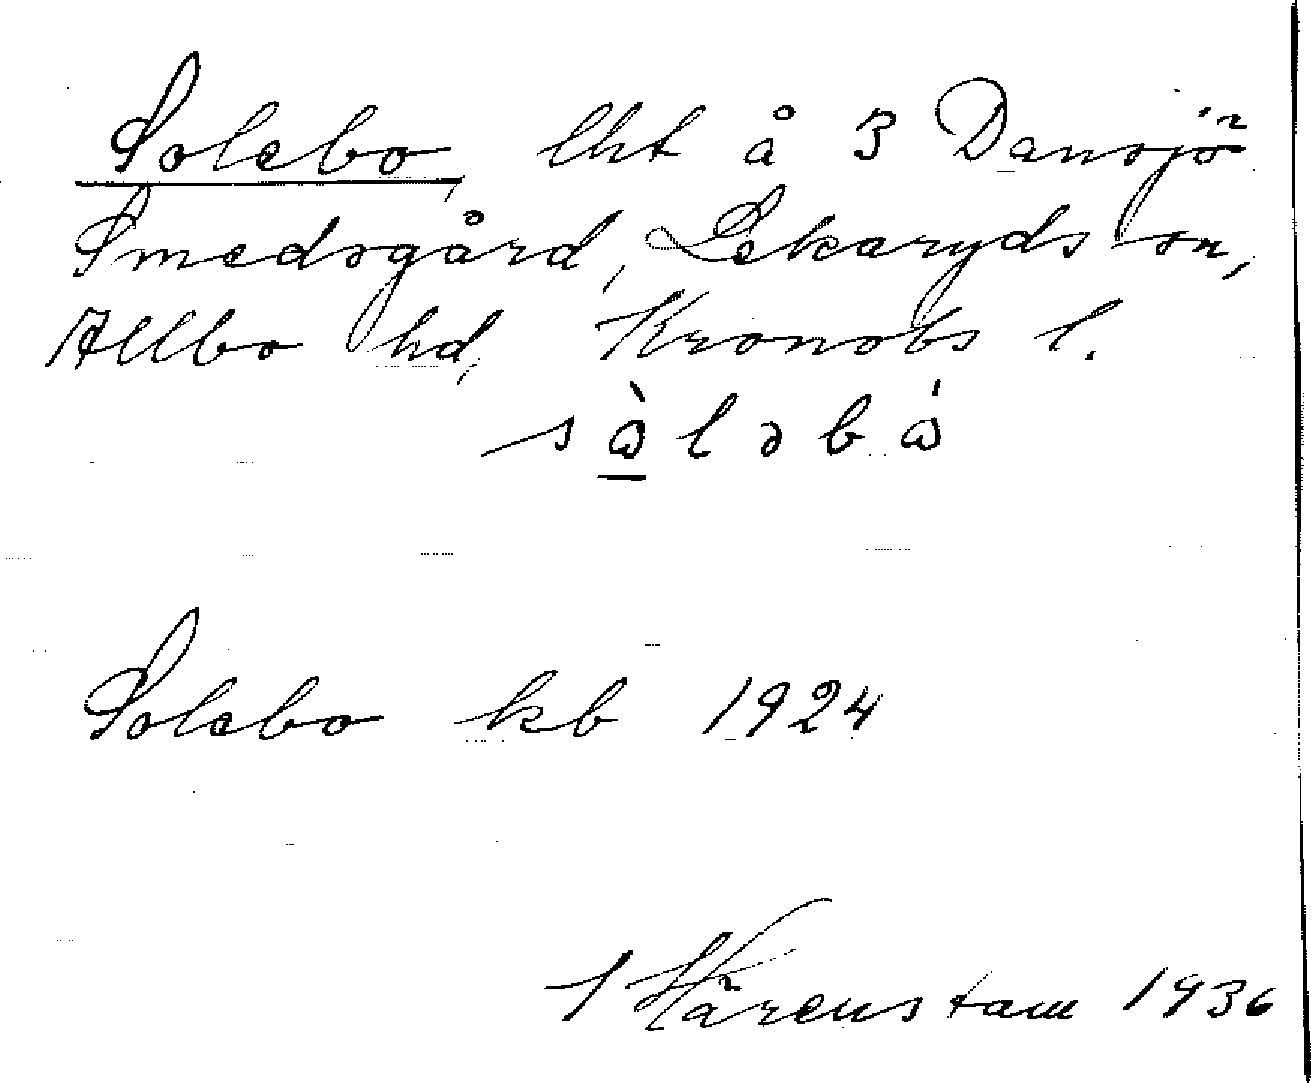 Solebo, lht å 3 Dansjö
Smedsgård, Lekaryds sn,
Allbo hd, Kronobs l.
sòləbó
Solebo kb 1924
I Härenstam 1936